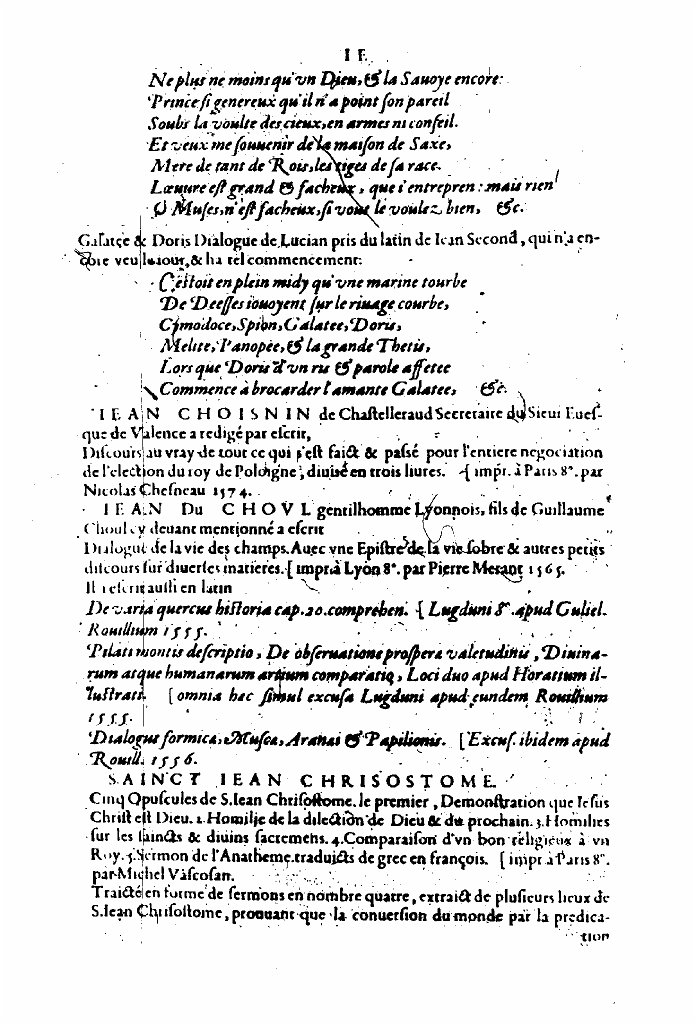 I E
Ne plus ne moins qu'vn Dieu, & la Sauoye encore:
Prince si genereux qu'il n'a point son pareil
Soubs la voulte des cieux, en armes ni conseil.
Et veux me souuenir de la maison de Saxe,
Mere de tant de Rois, les tiges de sa race.
Lœuure est grand & facheux, que i'entrepren: mais rien
O Muses, n'est facheux, si vous le voulez bien, &c.
Galatee & Doris Dialogue de Lucian pris du latin de Iean Second, qui n'a en-
core veu le iour, & ha tel commencement:
C'estoit en plein midy qu'vne marine tourbe
De Deesses iouoyent sur le riuage courbe,
Cymodoce, Spion, Galatee, Doris,
Melite, Panopee, & la grande Thetis,
Lors que Doris d'vn ris & parole affetee
Commence à brocarder l'amante Galatee, &c.
IEAN CHOISNIN de Chastelleraud Secretaire du Sieur Eues-
que de Valence a redigé par escrit,
Discours au vray de tout ce qui s'est faict & passé pour l'entiere negociation
de l'election du roy de Pologne, diuisé en trois liures. [impr. à Paris 8°. par
Nicolas Chesneau 1574.
IEAN DU CHOVL gentilhomme Lyonnois, fils de Guillaume
Choul cy deuant mentionné a escrit
Dialogue de la vie des champs. Auec vne Epistre de la vie sobre & autres petits
discours sur diuerses matieres. [impr. à Lyon 8°. par Pierre Merant 1565.
Il escrit aussi en latin
De varia quercus historia cap. 20. comprehen. [Lugduni 8°. apud Guliel.
Rouillium 1555.
Pilati montis descriptio, De obseruatione prospera valetudinis, Diuina-
rum atque humanarum artium comparatio, Loci duo apud Horatium il-
lustrati. [omnia hac simul excusa Lugduni apud eundem Rouillium
1555.
Dialogus formica, Musca, Aranai & Papilionis. [Excus. ibidem apud
Rouill. 1556.
SAINCT IEAN CHRISOSTOME.
Cinq Opuscules de S. Iean Chrisostome. le premier, Demonstration que Iesus
Christ est Dieu. 2. Homilie de la dilection de Dieu & du prochain. 3. Homilies
sur les saincts & diuins sacremens. 4. Comparaison d'vn bon religieux à vn
Roy. 5. Sermon de l'Anatheme. traduicts de grec en françois. [impr à Paris 8°.
par Michel Vascosan.
Traicté en forme de sermons en nombre quatre, extraict de plusieurs lieux de
S. Iean Chrisostome, prouuant que la conuersion du monde par la predica-
tion